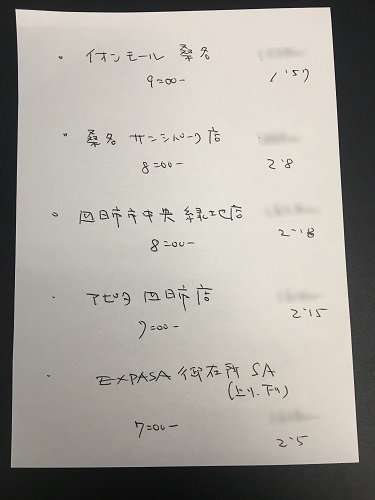 。イオンモール 桑名
9:00-
1'57
。桑名 サンシパーク店
8:00-
2'8
。四日市市中央緑地店
8:00-
2'18
・アピタ 四日市店
7:00-
2'15
・EXPASA 御在所 SA
(上り、下り)
7:00-
2'5